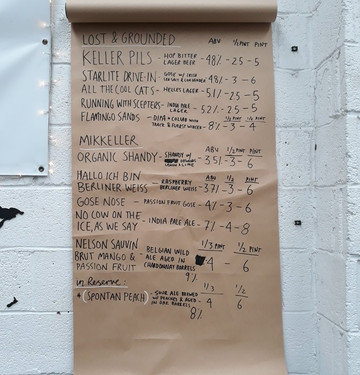 LOST & GROUNDED ABV 1/2 PINT PINT
KELLER PILS - HOP BITTER LAGER BEER - 4.8% - 2.5 - 5
STARLITE DRIVE-IN - GOSE WITH - 4.8% - 3 - 6
ALL THE COOL CATS - HELLES LAGER - 5.1% - 2.5 - 5
RUNNING WITH SCEPTERS - INDIA PALE LAGER - 5.2% - 2.5 - 5
FLAMINGO SANDS - DIPA COLLAB WITH TRACK & 8% - 3 - 4
MIKKELLER ABV 1/2 PINT PINT
ORGANIC SHANDY - SHANDY W/ & LIME - 3.5% - 3 - 6
HALLO ICH BIN ABV 1/2 PINT
BERLINER WEISS - RASPBERRY BERLINER WEISS - 3.7% - 3 - 6
GOSE NOSE - PASSION FRUIT GOSE - 4% - 3 - 6
NO COW ON THE
ICE, AS WE SAY - INDIA PALE ALE - 7% - 4 - 8
NELSON SAUVIN BELGIAN WILD 1/3 PINT 1/2 PINT
BRUT MANGO & - ALE AGED IN 4 - 6
PASSION FRUIT CHARDONNAY BARRELS
9%
in Reserve 1/3 1/2
* (SPONTAN PEACH) - SOUR ALE BREWED W/ PEACHES & AGED IN OAK BARRELS 4 6
8%